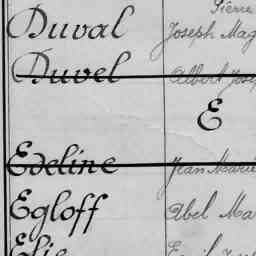 Pierre
Duval Joseph Mag
Duvel Albert Jose
E
Edeline Jean Marie
Egloff Abel Ma
Elie